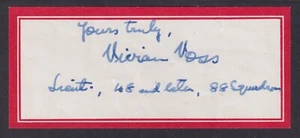 Yours truly,
Vivian Voss
Lieut., 48 and later, 88 Squadron